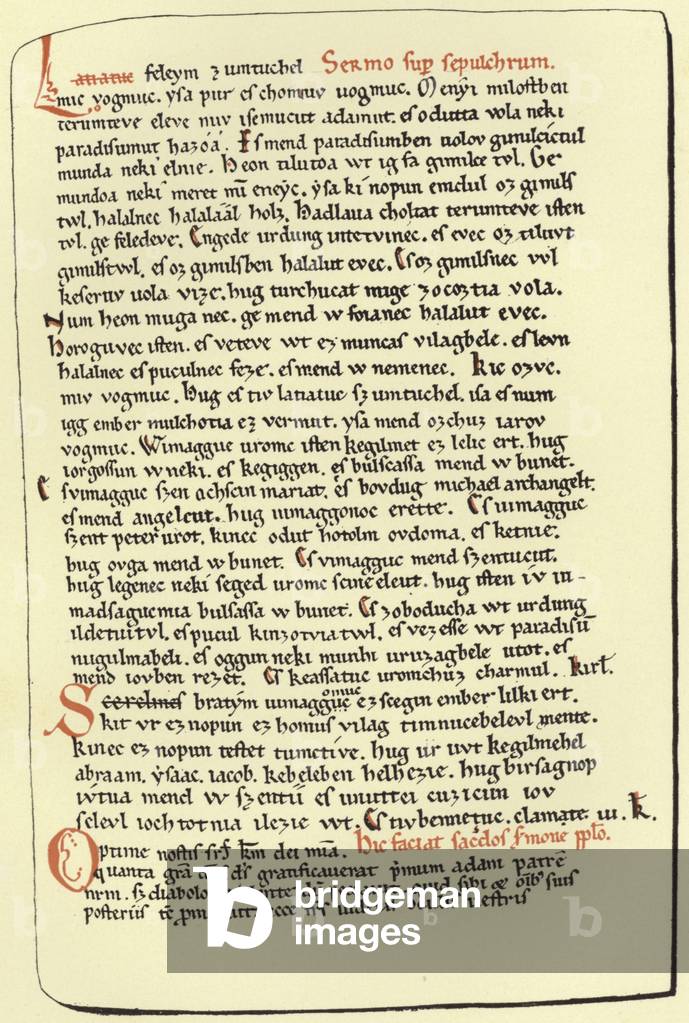 Latiatuc feleym ȝumtuchel Sermo sup sepulchrum.
mic vogmuc. yſa pur eſ chomuv uogmuc. Menyi miloſtben
terumteve eleve miv iſemucut adamut. eſ odutta vola neki
paradiſumut haꝫoá. Eſ mend paradiſumben uolov gimilcictul
munda neki elnie. Heon tilutoa wt ig fa gimilce tvl. Ge
mundoa neki meret nū eneyc. yſa ki nopun emdul oꝫ gimilſ
twl. halalnec halaláál holꝫ. Hadlaua choltat terumteve iſten
tvl. ge feledeve. Engede urdung intetvinec. eſ evec oꝫ tiluvt
gimilſtwl. eſ oꝫ gimilſben halalut evec. Eſ oꝫ gimilſnec vvl
keſeruv uola viꝫe. hug turchucat mige ꝫocoꝫtia vola.
Num heon muga nec. ge mend w foianec halalut evec.
Horoguvec iſten. eſ veteve wt eꝫ muncaſ vilagbele. eſ levn
halalnec eſ puculnec feꝫe. eſ mend w nemenec. Kic oꝫvc.
miv vogmuc. Hug eſ tiv latiatuv ſꝫumtuchel. iſa eſ num
igg ember mulchotia eꝫ vermut. yſa mend oꝫchuꝫ iarov
vogmuc. Wimagguc uromc iſten kegilmet eꝫ lelic ert. hug
iorgoſſun w neki. eſ kegiggen. eſ bulſcaſſa mend w bunet.
Eſ vimagguc ſꝫen achſcin mariat. eſ bovdug michael archangelt.
eſ mend angelcut. hug uimaggonoc erette. Eſ uimagguc
ſꝫent peter urot. kinec odut hotolm ovdonia. eſ ketnie.
hug ovga mend w bunet. Eſ vimagguc mend ſꝫentucut.
hug legenec neki ſeged uromc ſcine eleut. hug iſten iv ui-
madſaguc mia bulſaſſa w bunet. Eſ ꝫoboducha wt urdung
ildetuitvl. eſ pucul kinꝫotviatwl. eſ veꝫeſſe wt paradiſū
nugulmabeli. eſ oggun neki munhi uruꝫagbele utot. eſ
mend iovben reꝫet. Eſ keaſſatuc uromchuꝫ charmul. Kirł.
Scerelmeſ bratym uimagguc omuc eꝫ ſcegin ember lilki ert.
kit vr eꝫ nopun eꝫ homuſ vilag timnucebelevl mente.
kinec eꝫ nopun teſtet tumetive. hug ur uvt kegilmehel
abraam. yſaac. iacob. kebeleben helheꝫie. hug birſagnop
ivtua mend w ſꝫentii eſ unuttei cuꝫicun iov
felevl iochtotnia ileꝫie wt. Eſ tivbennetuc. clamate iii. K.
Hic faciat sacdos smone pplo.
Optime noſtis frſ km̄ dei mīa.
quanta grā dñs gratificauerat pmum adam patrē
nrm. ſꝫ diabolo
poſteriis
bridgeman
images